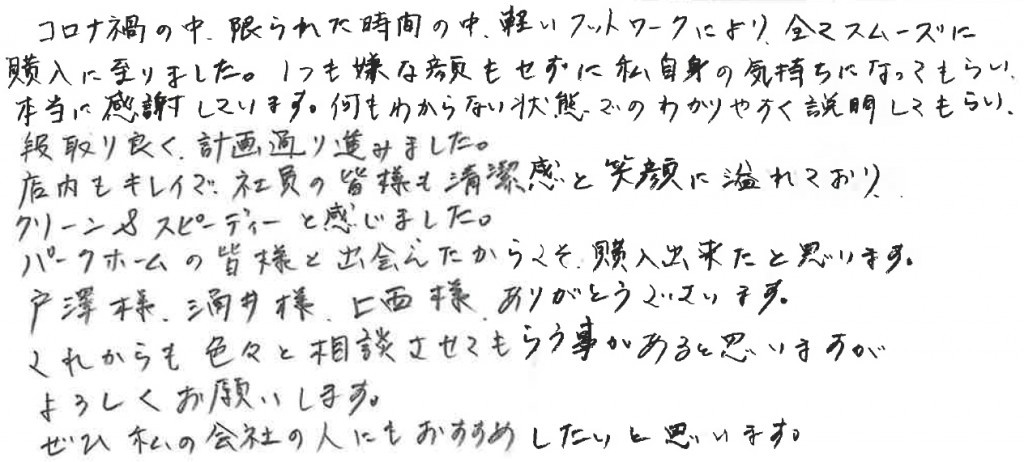 コロナ禍の中、限られた時間の中、軽いフットワークにより、全てスムーズに
購入に至りました。1つも嫌な顔もせずに私自身の気持ちになってもらい、
本当に感謝しています。何もわからない状態でのわかりやすく説明してもらい、
段取り良く、計画通り進みました。
店内もキレイで、社員の皆様も清潔感と笑顔に溢れており、
クリーン&スピーディーと感じました。
パークホームの皆様と出会えたからこそ、購入出来たと思います。
戸澤様、涌井様、上西様、ありがとうございます。
これからも色々と相談させてもらう事があると思いますが
よろしくお願いします。
ぜひ私の会社の人にもおすすめしたいと思います。